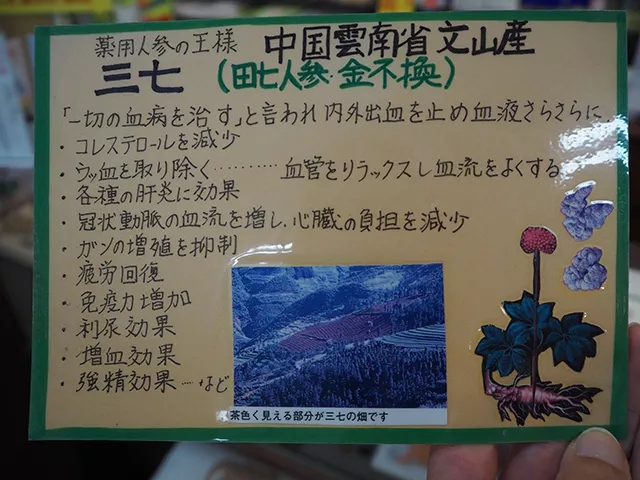 薬用人参の王様 中国雲南省文山産
三七 (田七人参・金不換)
「一切の血病を治す」と言われ内外出血を止め血液さらさらに.
・コレステロールを減少
・ウッ血を取り除く………血管をリラックスし血流をよくする
・各種の肝炎に効果
・冠状動脈の血流を増し、心臓の負担を減少
・ガンの増殖を抑制
・疲労回復
・免疫力増加
・利尿効果
・増血効果
・強精効果…など
茶色く見える部分が三七の畑です